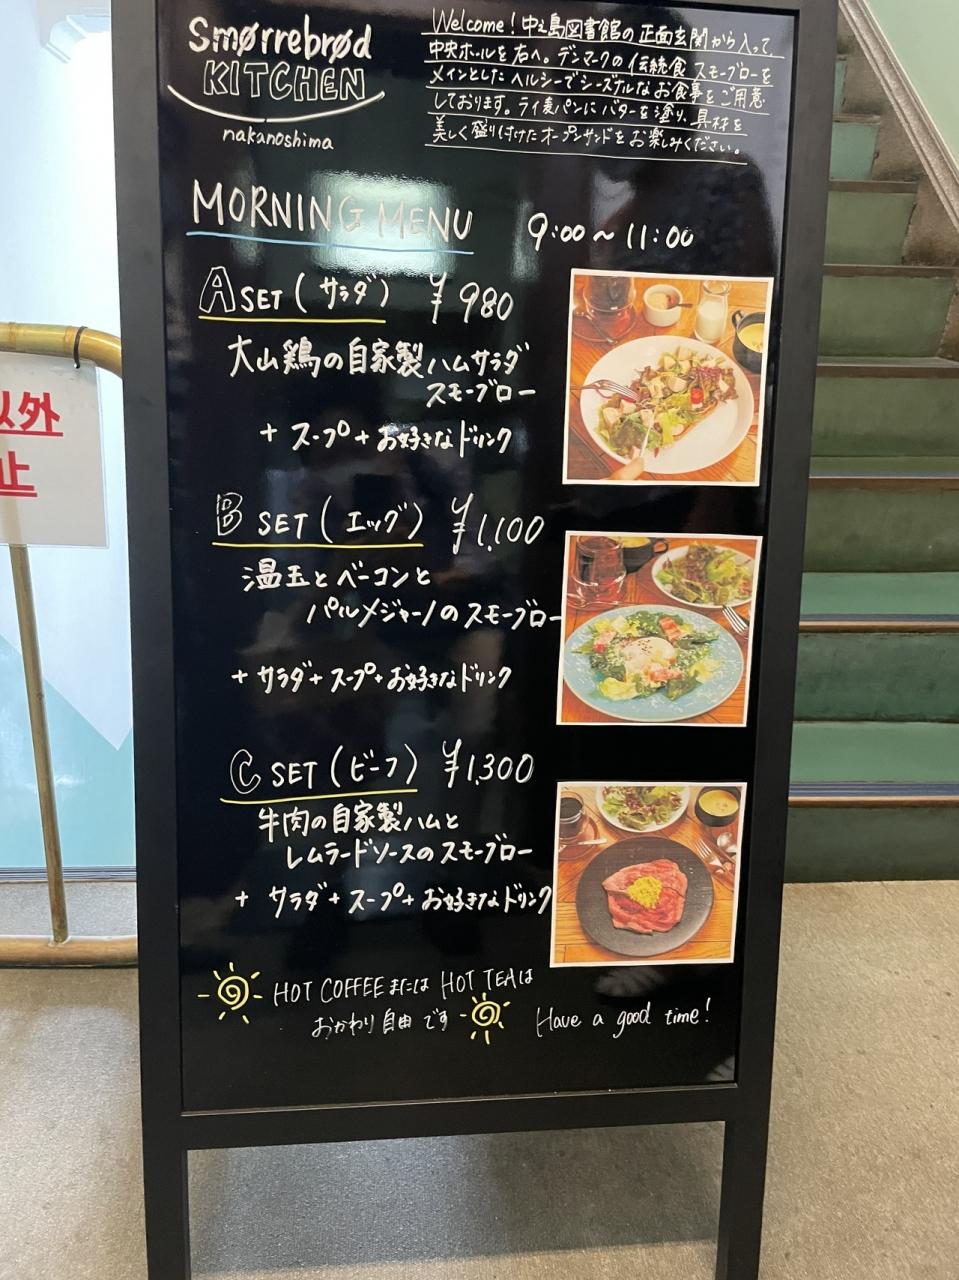 Smørrebrød
KITCHEN
nakanoshima
Welcome! 中之島図書館の正面玄関から入って、
中央ホールを右へ。デンマークの伝統食 スモーブローを
メインとしたヘルシーでシーズナルなお食事をご用意
しております。ライ麦パンにバターを塗り、具材を
美しく盛り付けたオープンサンドをお楽しみください。
MORNING MENU 9:00～11:00
A SET (サラダ) ¥980
大山鶏の自家製ハムサラダ
スモーブロー
+ スープ+お好きなドリンク
B SET (エッグ) ¥1,100
温玉とベーコンと
パルメジャーノのスモーブロー
+ サラダ+スープ+お好きなドリンク
C SET (ビーフ) ¥1,300
牛肉の自家製ハムと
レムラードソースのスモーブロー
+ サラダ+スープ+お好きなドリンク
HOT COFFEE または HOT TEAは
おかわり自由です
Have a good time!
以外
止